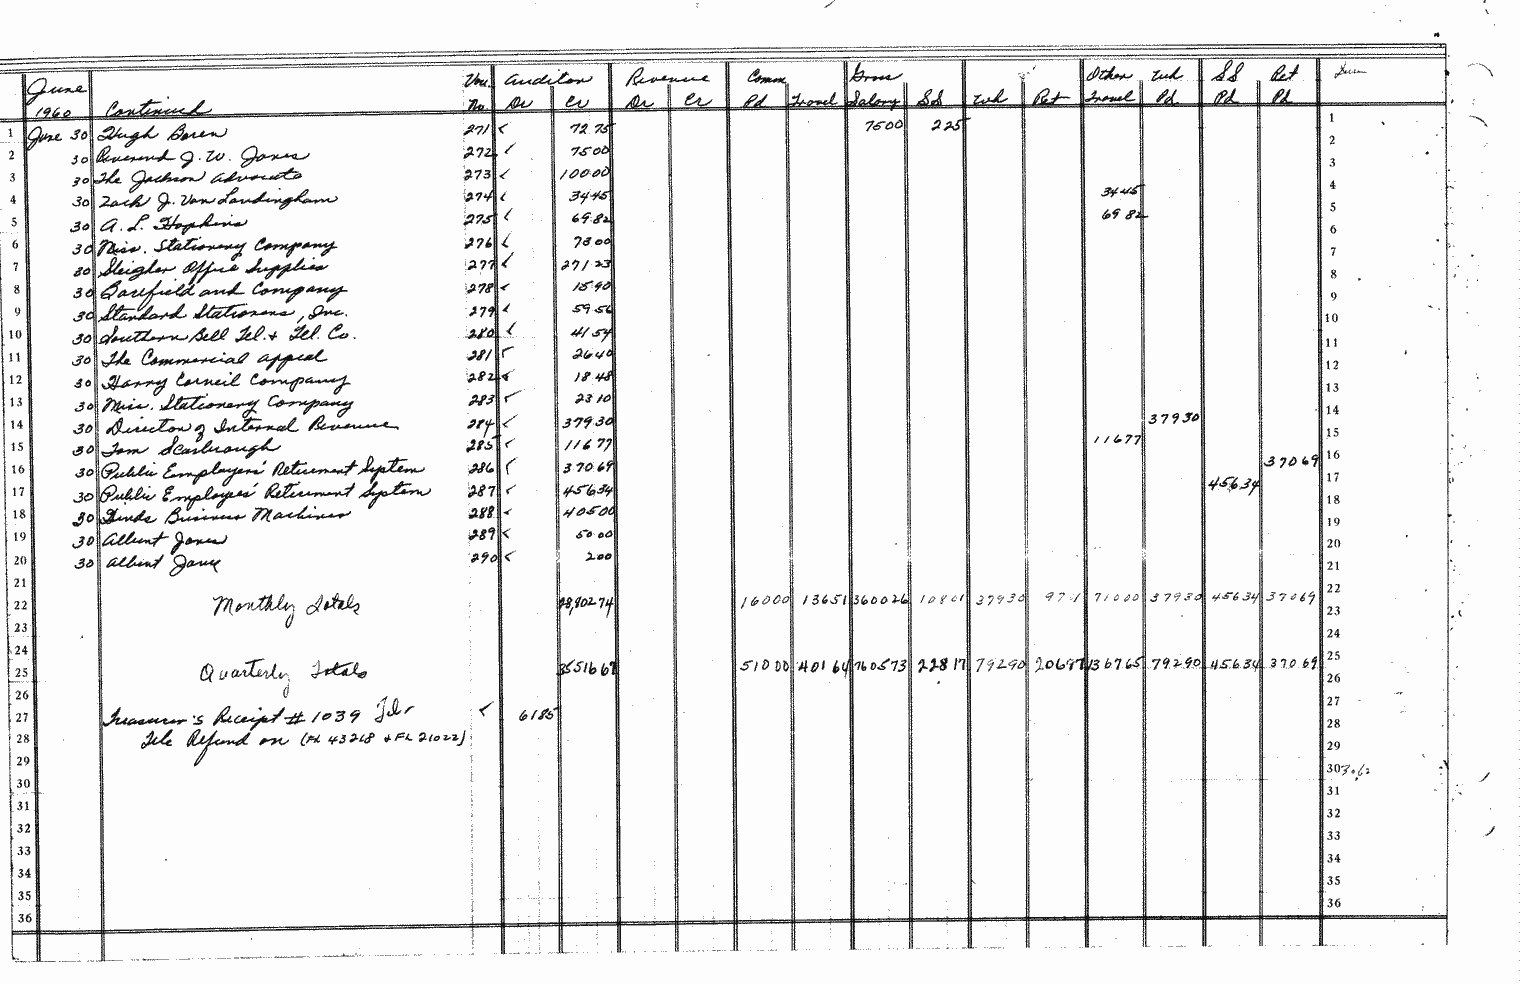 June Vou. Auditor Revenue Comm Gross Other Wh SS Ret
1960 Continued No. Dr Cr Dr Cr Pd Travel Salary SS Wh Ret Travel Pd Pd Pd
1 June 30 Hugh Boren 271 72 75 75 00 2 25 1
2 30 Reverend J. W. Jones 272 75 00 2
3 30 The Jackson Advocate 273 100 00 3
4 30 Zack J. Van Landingham 274 34 45 34 45 4
5 30 A. L. Hopkins 275 69 82 69 82 5
6 30 Miss. Stationery Company 276 73 00 6
7 30 Steigler Office Supplies 277 271 23 7
8 30 Barefield and Company 278 15 90 8
9 30 Standard Stationers, Inc. 279 59 56 9
10 30 Southern Bell Tel. & Tel. Co. 280 41 54 10
11 30 The Commercial Appeal 281 26 40 11
12 30 Harry Corneil Company 282 18 48 12
13 30 Miss. Stationery Company 283 23 10 13
14 30 Director of Internal Revenue 284 379 30 379 30 14
15 30 Tom Scarbrough 285 116 77 116 77 15
16 30 Public Employees' Retirement System 286 370 69 370 69 16
17 30 Public Employees' Retirement System 287 456 34 456 34 17
18 30 Business Machines 288 405 00 18
19 30 Albert Jones 289 50 00 19
20 30 Albert Jones 290 2 00 20
21 21
22 Monthly Totals 8,802.74 160 00 136 51 3600 26 108 01 379 30 710 00 379 30 456 34 370 69 22
23 23
24 24
25 Quarterly Totals 35516 67 510 00 401 64 7605 73 228 17 792 90 206 97 1367 65 792 90 456 34 370 69 25
26 26
27 Treasurer's Receipt # 1039 61 85 27
28 Tele Refund on (FL 43218 & FL 21022) 28
29 29
30 30
31 31
32 32
33 33
34 34
35 35
36 36